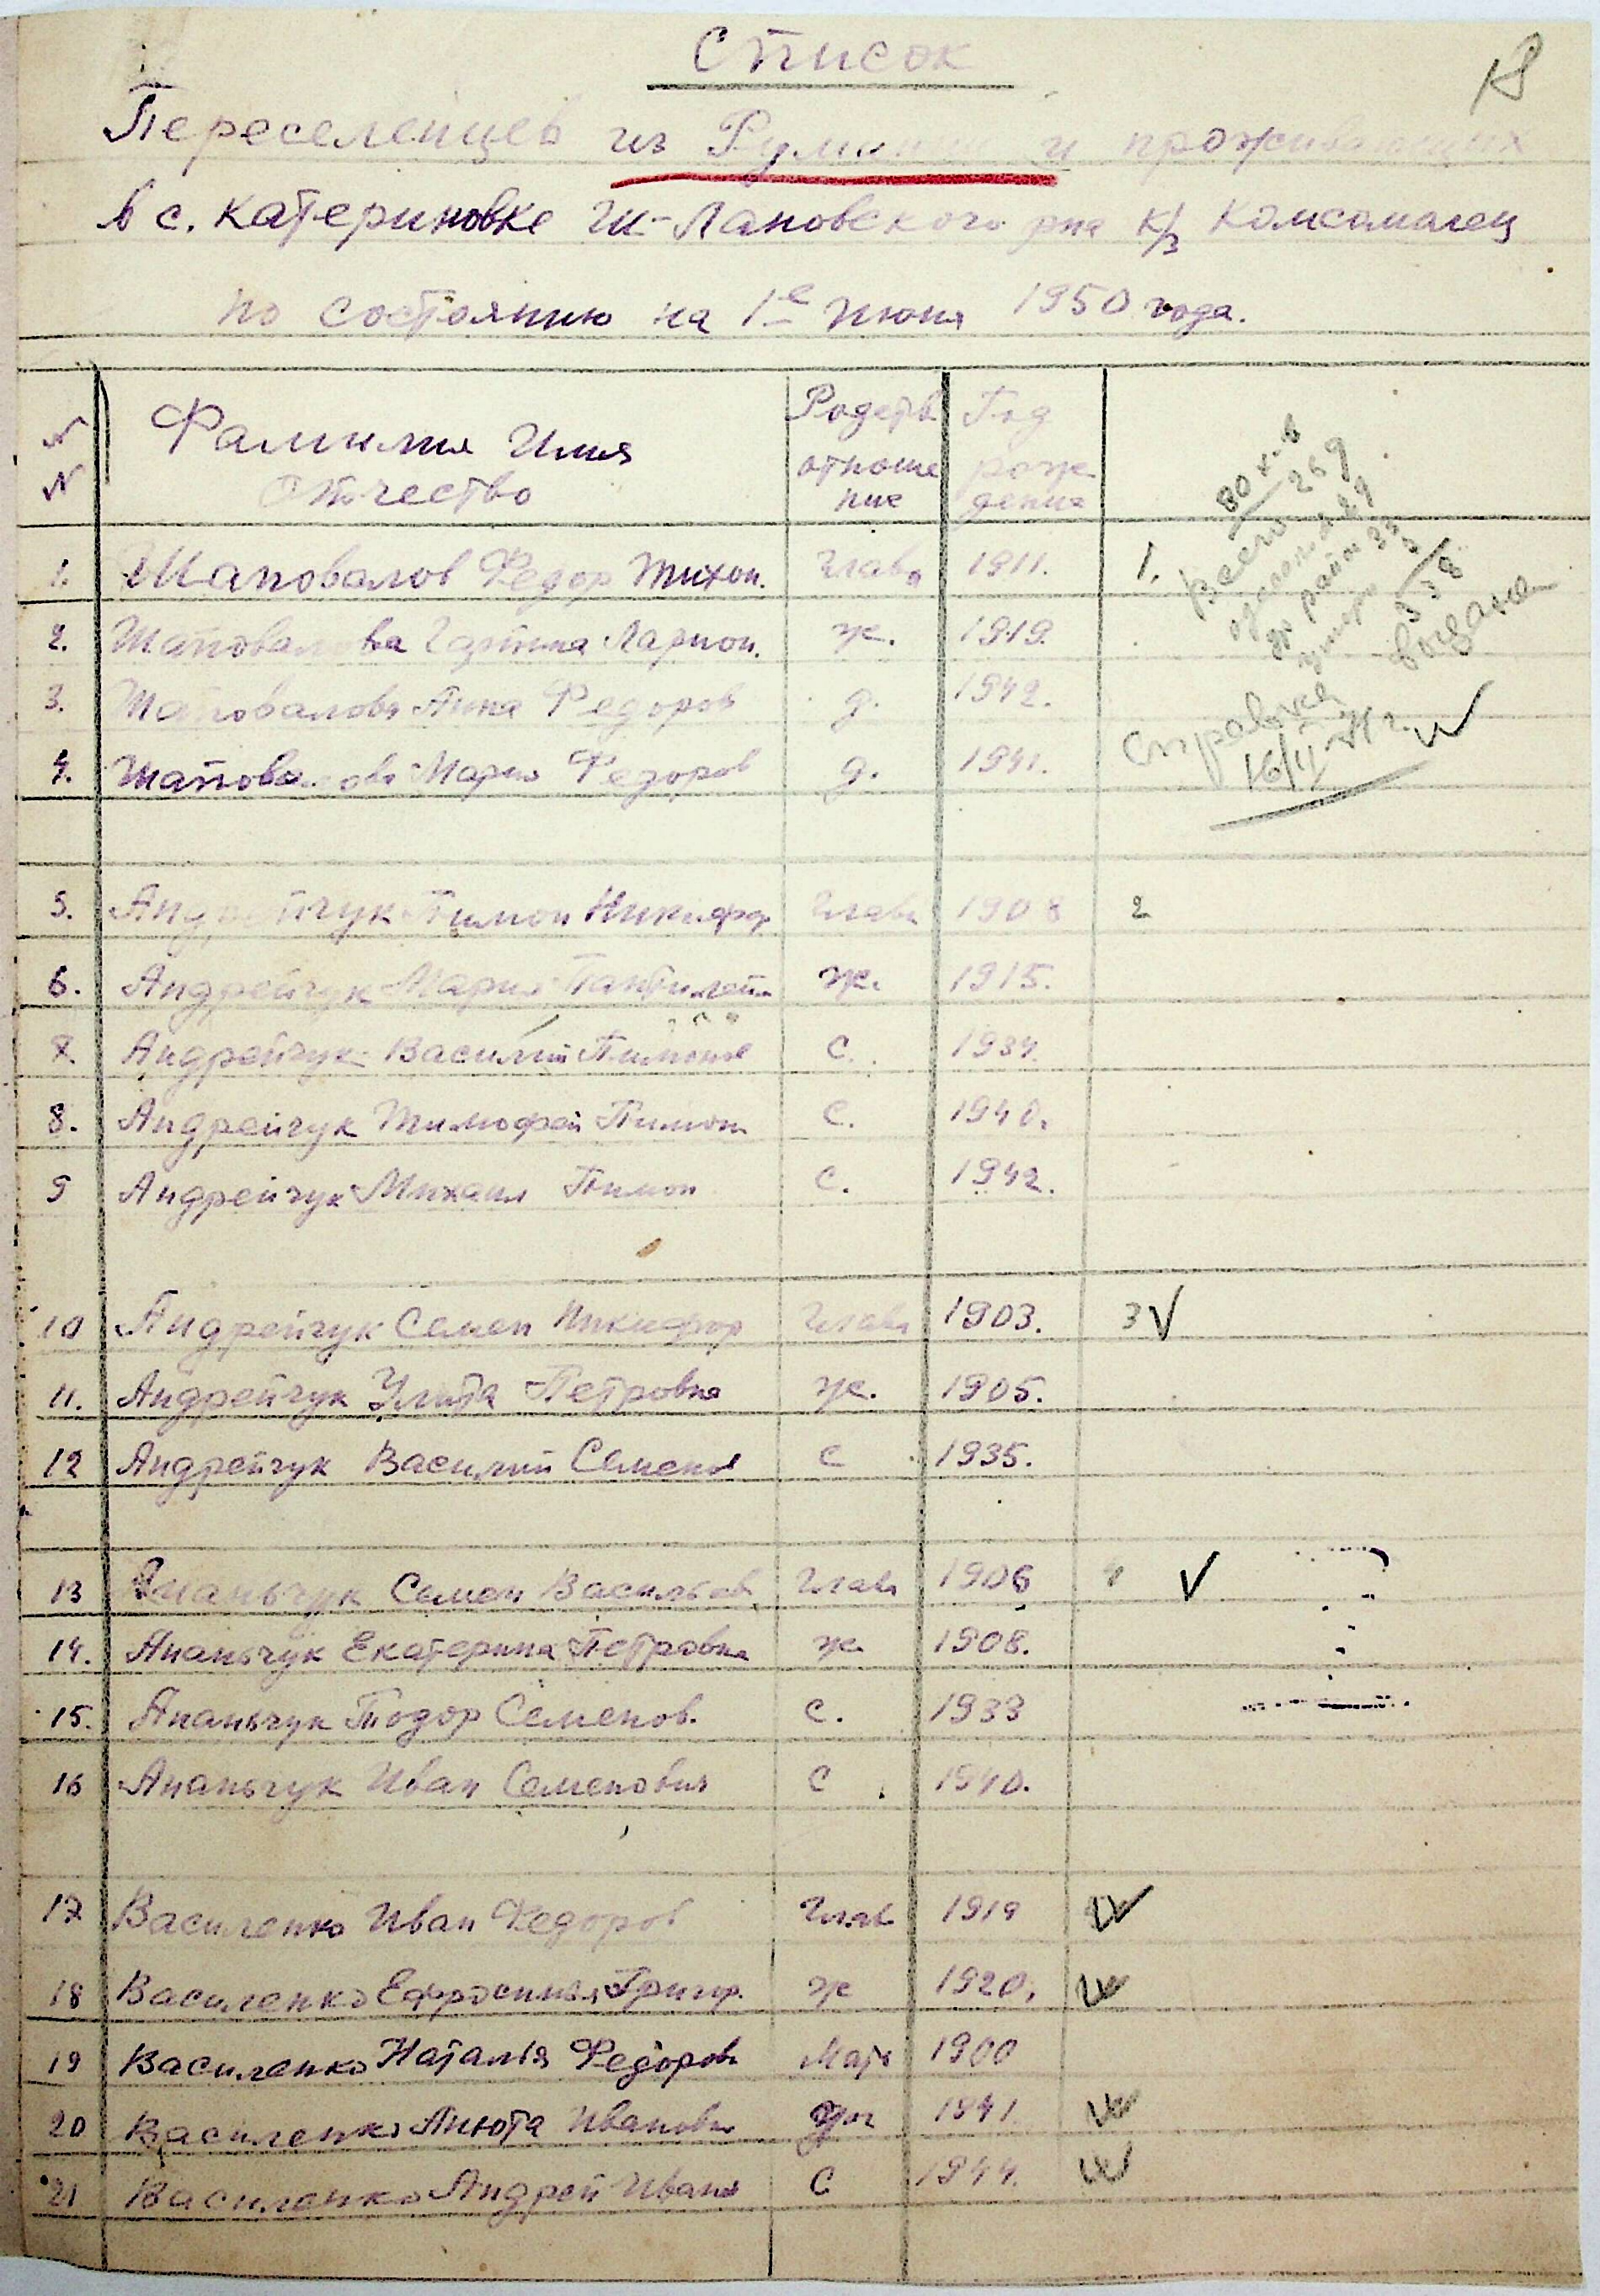 Список
18
Переселенцев из Румынии и проживающих
в с. Катериновке Ш-Лановского рна к/з Комсомолец
по состоянию на 1е июня 1950 года.
N N Фамилия Имя Отчество Родств отноше ние Год рож дения
80 к-в
Всего 269
338
Справка выдана
16/II-71 г.
1. Шаповалов Федор Тихон. глава 1911. 1.
2. Шаповалова Ларион. ж. 1919.
3. Шаповалова Анна Федоров д. 1942.
4. Шаповалова Мария Федоров д. 1941.
5. Андрейчук Пимон Никифор глава 1908 2
6. Андрейчук Мария Пантилей ж. 1915.
7. Андрейчук Василий Пимонов с. 1934.
8. Андрейчук Тимофей Пимон с. 1940.
9 Андрейчук Михаил Пимон с. 1942.
10 Андрейчук Семен Никифор глава 1903. 3
11. Андрейчук Улита Петровна ж. 1905.
12 Андрейчук Василий Семенов с 1935.
13 Ананьчук Семен Васильев глава 1906
14. Ананьчук Екатерина Петровна ж 1908.
15. Ананьчук Тодор Семенов. с. 1933
16 Ананьчук Иван Семенович с 1940.
17 Василенко Иван Федоров глав 1919
18 Василенко Ефросинья Григор. ж 1920.
19 Василенко Наталья Федоров мать 1900
20 Василенко Анюта Ивановн доч 1941.
21 Василенко Андрей Иванов с 1944.